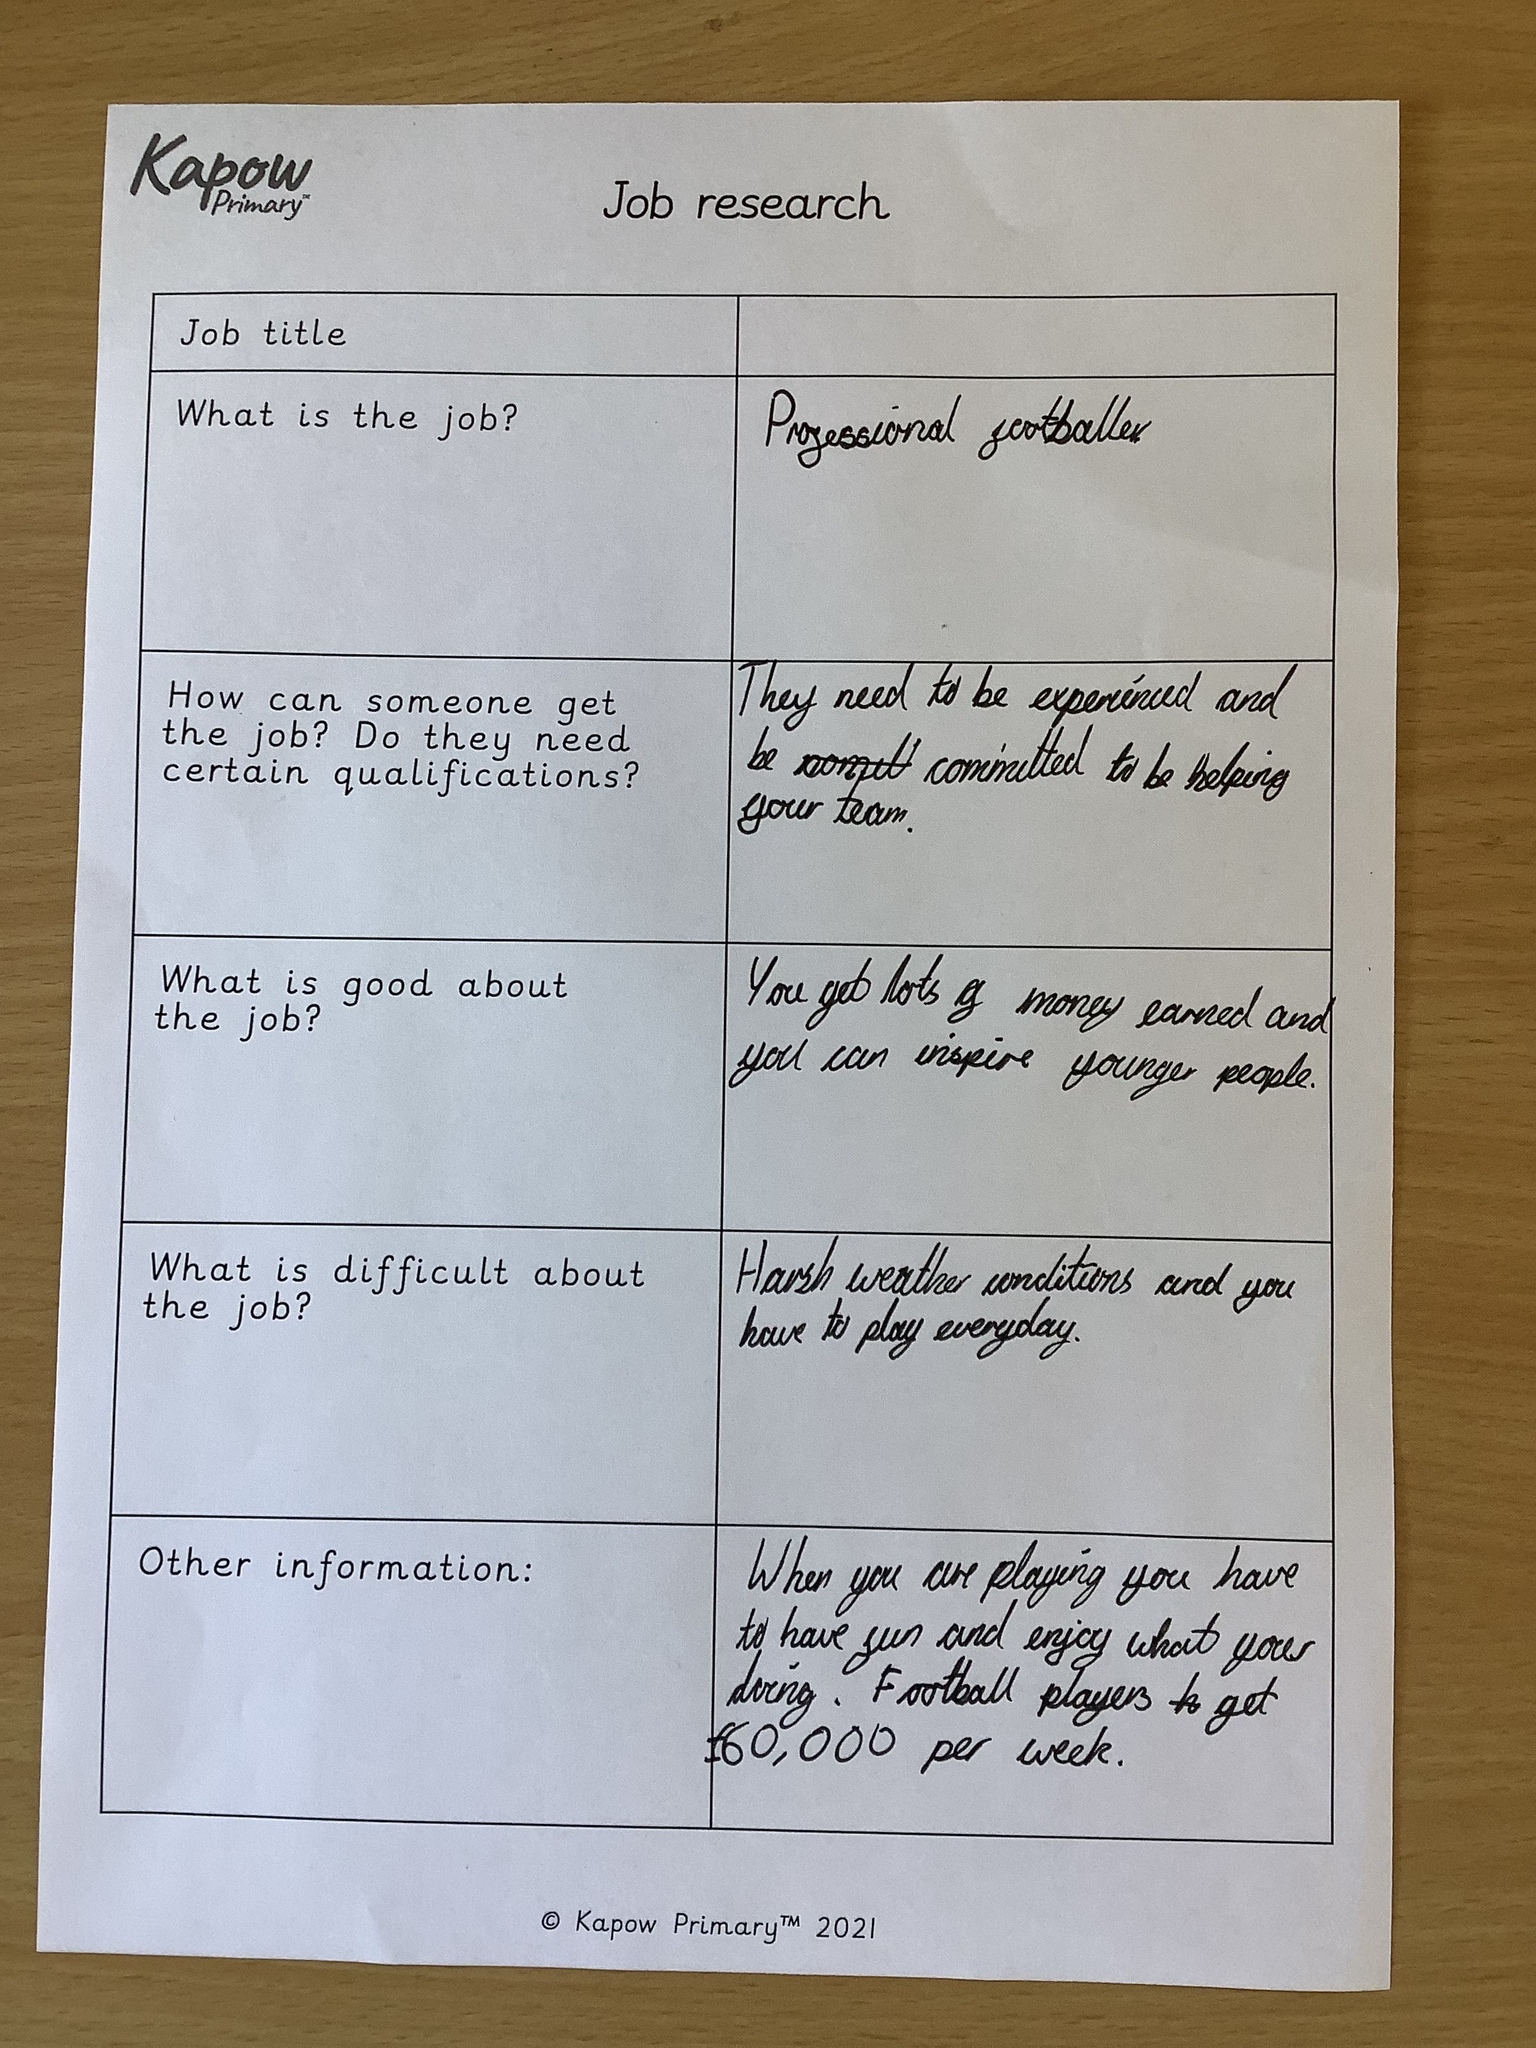 Kapow
Primary™
Job research
Job title
What is the job?
Professional footballer
How can someone get
the job? Do they need
certain qualifications?
They need to be experienced and
be committed to be helping
your team.
What is good about
the job?
You get lots of money earned and
you can inspire younger people.
What is difficult about
the job?
Harsh weather conditions and you
have to play everyday.
Other information:
When you are playing you have
to have fun and enjoy what your
doing. Football players get
£60,000 per week.
© Kapow Primary™ 2021